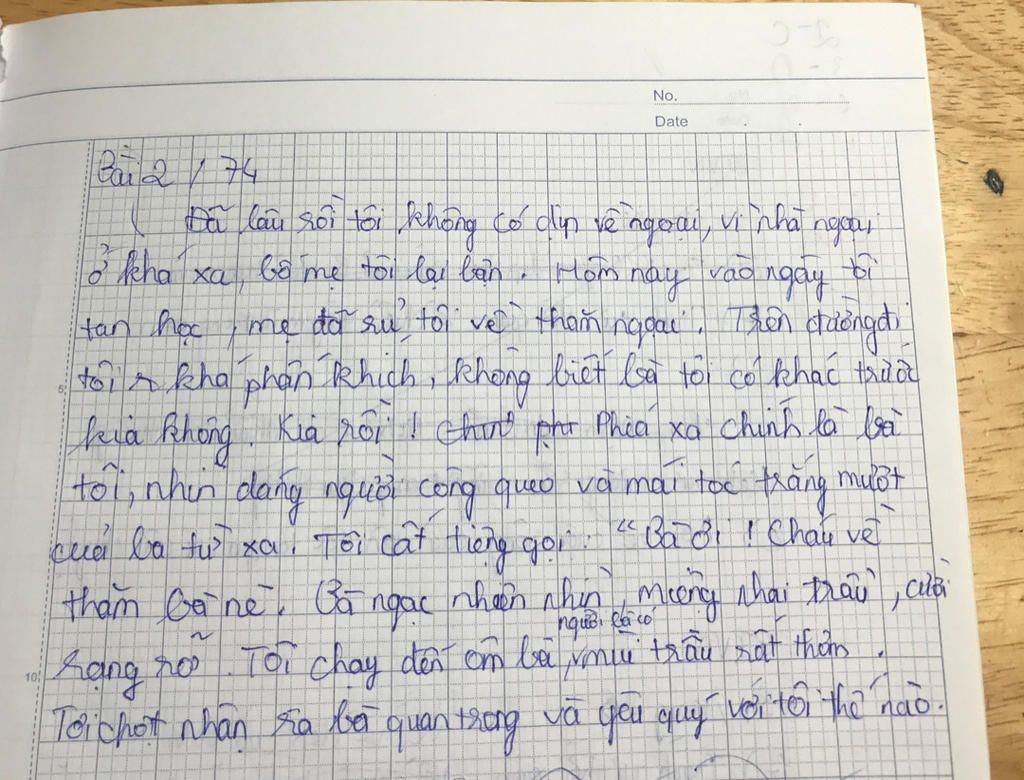 No.
Date
Bài 2 / 74
Đã lâu rồi tôi không có dịp về ngoại, vì nhà ngoại
ở khá xa, bố mẹ tôi lại bận. Hôm nay vào ngày tôi
tan học, mẹ đã rủ tôi về thăm ngoại. Trên đường đi
tôi khá phấn khích, không biết bà tôi có khác trước
kia không. Kia rồi! Phía xa chính là bà
tôi, nhìn dáng người còng queo và mái tóc trắng mướt
của bà từ xa. Tôi cất tiếng gọi: "Bà ơi! Cháu về
thăm bà nè. Bà ngạc nhiên nhìn, miệng nhai trầu, cười
người bà có
rạng rỡ. Tôi chạy đến ôm bà, mùi trầu rất thơm.
Tôi chợt nhận ra bà quan trọng và yêu quý với tôi thế nào.